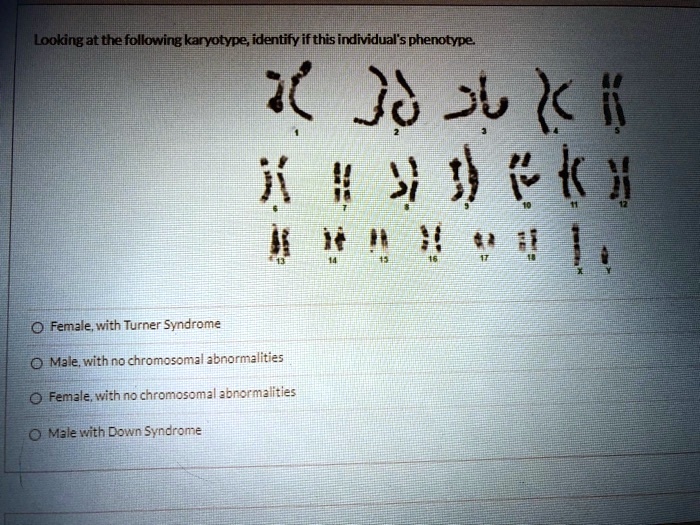 Looking at the following karyotype, identify if this individual's phenotype.
1 2 3 4 5
6 7 8 9 10 11 12
13 14 15 16 17 18 X Y
Female, with Turner Syndrome
Male, with no chromosomal abnormalities
Female, with no chromosomal abnormalities
Male with Down Syndrome